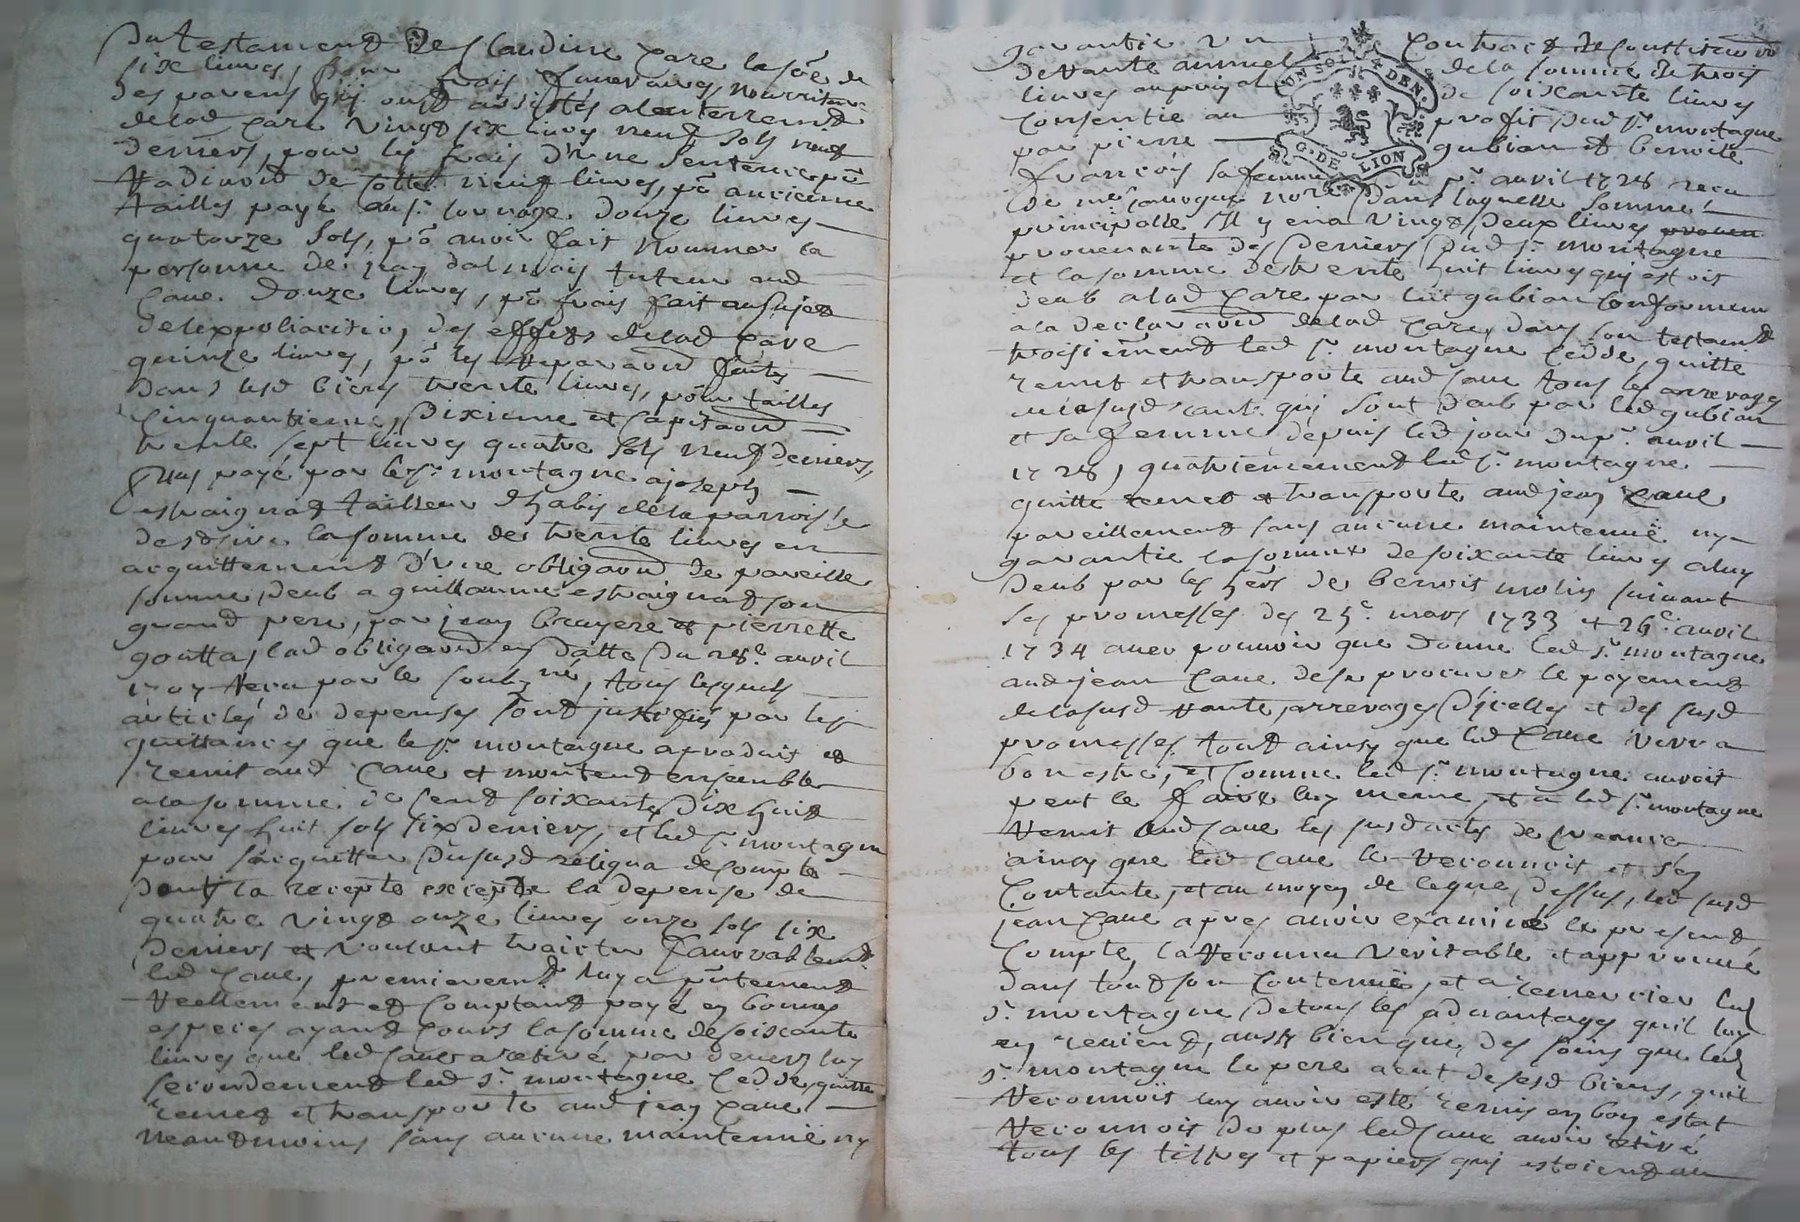 Du testament de Claudine Cave la sõe de
six livres, pour frais funeraires, nourriture
des parens qui ont assistés a lenterrement
de lad Cave vingt six livres neuf sols neuf
deniers, pour les frais d'une sentence
de sottes neuf livres, põ ancienne
tailles payé au sr. douze livres
quatorze sols, põ avoir fait nommer la
personne de jean dalmais tuteur aud
Cave. Douze livres, põ frais fait au sujet
de lexpoliation des effets de lad Cave
quinze livres, põ les reparaõns faites
dans lesd biens trente livres, pour tailles
cinquantieme, dixieme et capitaõn
trente sept livres quatre sols neuf deniers,
plus payé par le sr. montagne a joseph
estraignat tailleur d'habis de la parroisse
la somme de trente livres en
acquittement d'une obligaõn de pareille
somme deub a guillaume estraignat son
grand pere, par jean bruyere et pierrette
goutta, lad obligaõn en datte du 28e. avril
1707 recu par le souzné, tous lesquels
articles de depenses sont justifiés par les
quittances que le sr. montagne a produit et
remit aud Cave et montent ensemble
a la somme de cent soixante dix huit
livres huit sols six deniers, et led sr. montagne
pour sacquitter du susd reliqua de compte
dont la recepte excepte la depense de
quatre vingt onze livres onze sols six
deniers et voulant traicter favorablemt
led Cave, premierement luy a pñtement
reellement et comptant payé en bonnes
especes ayant cours la somme de soixante
livres que led Cave a retiré par devers luy
secondement led sr. montagne cedde, quitte
remet et transporte aud jean Cave
neantmoins sans aucune maintenüe ny
garantie un contract de constitution
de rante annuel de la somme de trois
livres au principal de soixante livres
consentie au profit dud sr. montagne
par pierre gubian et benoite
françois sa femme le pr. avril 1728 recu
de me. nore dans laquelle somme
principalle Il y en a vingt deux livres
provenante des deniers dud sr. montagne
et la somme de trente huit livres qui estoit
deub a lad Cave par led gubian conformemt
a la declaraõn de lad Cave dans son testamt
troisiement led sr. montagne cedde, quitte
remet et transporte aud Cave tous les arrerages
de la susd rante qui sont deub par led gubian
et sa femme depuis led jour du pr. avril
1728, quatriemement led sr. montagne
quitte remet et transporte aud jean Cave
pareillement sans aucune maintenüe ny
garantie la somme de soixante livres a luy
deub par les hers de benoit molin suivant
ses promesses des 25e. mars 1733 et 26e. avril
1734 avec pouvoir que donne led sr. montagne
aud jean Cave de se procurer le payement
de la susd rante, arrerages d'icelles et des susd
promesses tout ainsy que led Cave verra
bon estre, et comme led sr. montagne auroit
peut le faire luy meme, et a led sr. montagne
remit aud Cave les susd actes de
ainsy que led Cave le reconnoit et s'en
contante, et au moyen de ce que dessus, led susd
jean Cave apres avoir examiné le present
compte, la reconnu veritable et approuvé
dans tout son contenüe, et a remercier led
sr. montagne de tous les advantages quil luy
en revient, aussy bien que des soins que led
sr. montagne le pere a eut de sesd biens, quil
reconnoit luy avoir esté remis en bon estat
reconnoit de plus led Cave avoir retiré
tous les tittres et papiers qui estoient au
UN SOL 4 DEN.
G. DE LION